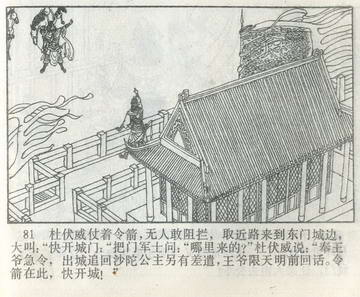 81 杜伏威仗着令箭,无人敢阻拦,取近路来到东门城边,
大叫:“快开城门:”把门军士问:“哪里来的?”杜伏威说:“奉王
爷急令,出城追回沙陀公主另有差遣,王爷限天明前回话。令
箭在此,快开城!”